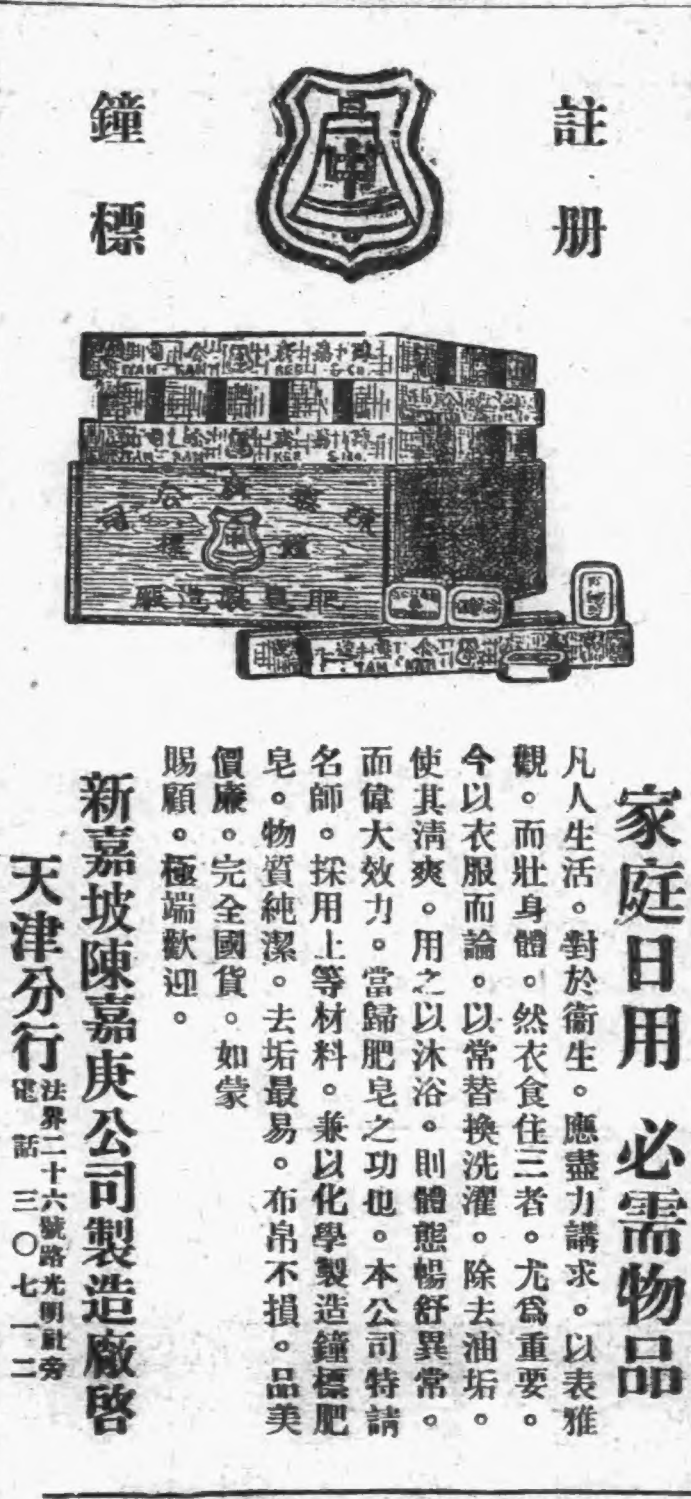 註册
鐘標
中
TAN - KAH
KEE & Co.
鐘標
肥皂製造廠
家庭日用 必需物品
凡人生活。對於衞生。應盡力講求。以表雅
觀。而壯身體。然衣食住三者。尤爲重要。
今以衣服而論。以常替換洗濯。除去油垢。
使其淸爽。用之以沐浴。則體態暢舒異常。
而偉大效力。當歸肥皂之功也。本公司特請
名師。採用上等材料。兼以化學製造鐘標肥
皂。物質純潔。去垢最易。布帛不損。品美
價廉。完全國貨。如蒙
賜顧。極端歡迎。
新嘉坡陳嘉庚公司製造廠啓
天津分行
法界二十六號路光明社旁
電話三〇七一二